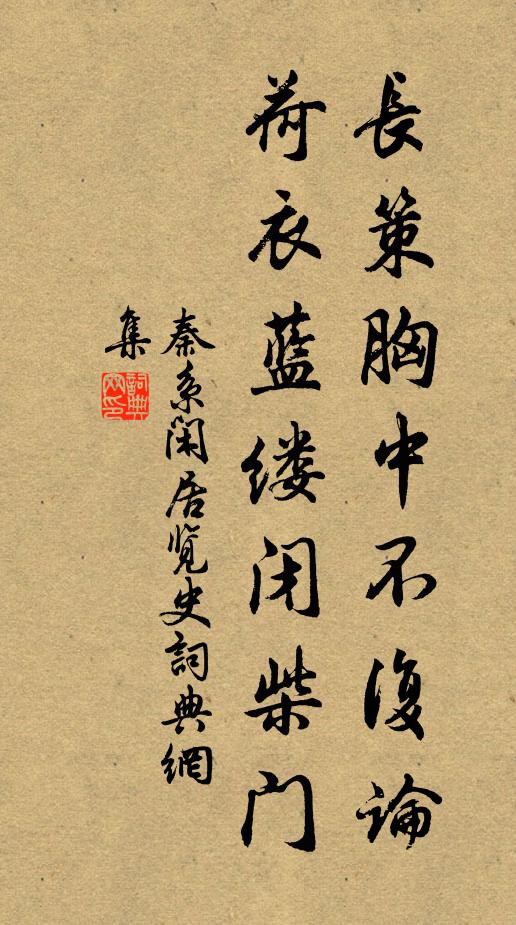 長策胸中不復論
荷衣藍缕闭柴门
秦系閑居览史詞典網
集
詞典
网印